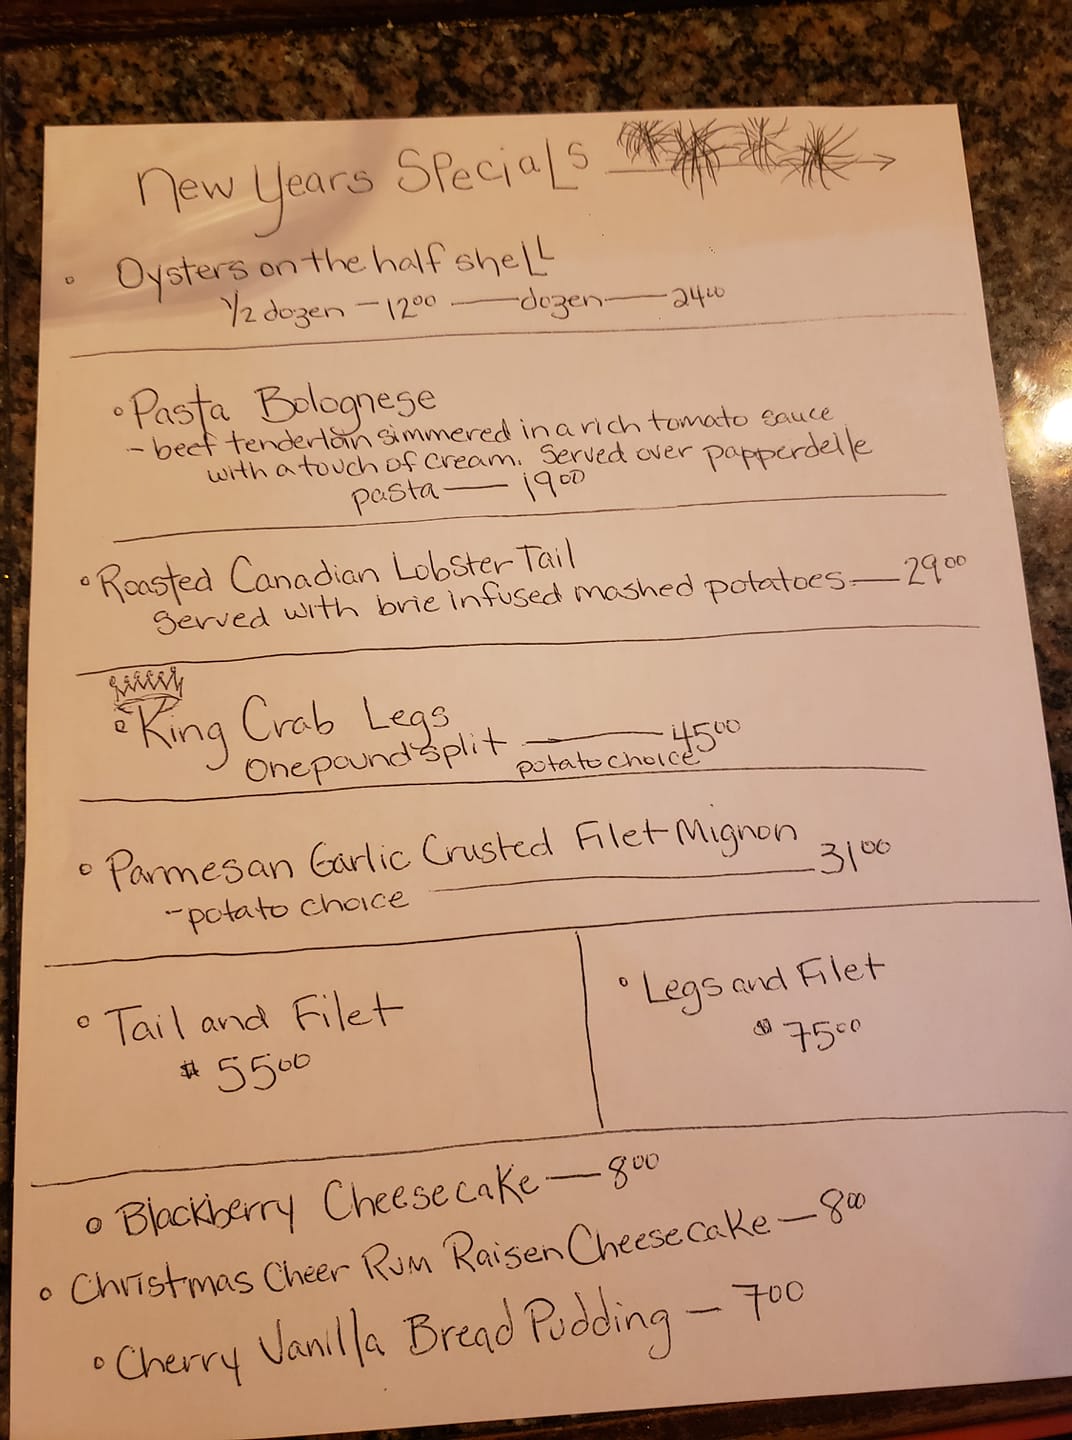 New Years Specials
Oysters on the half shell
1/2 dozen - 1200 — dozen — 2400
Pasta Bolognese
- beef tenderloin simmered in a rich tomato sauce
with a touch of cream. Served over papperdelle
pasta — 1900
Roasted Canadian Lobster Tail
Served with brie infused mashed potatoes — 2900
King Crab Legs
One pound split — 4500
potato choice
Parmesan Garlic Crusted Filet Mignon
- potato choice — 3100
Tail and Filet
$ 5500
Legs and Filet
$ 7500
Blackberry Cheesecake — 800
Christmas Cheer Rum Raisen Cheesecake — 800
Cherry Vanilla Bread Pudding — 700